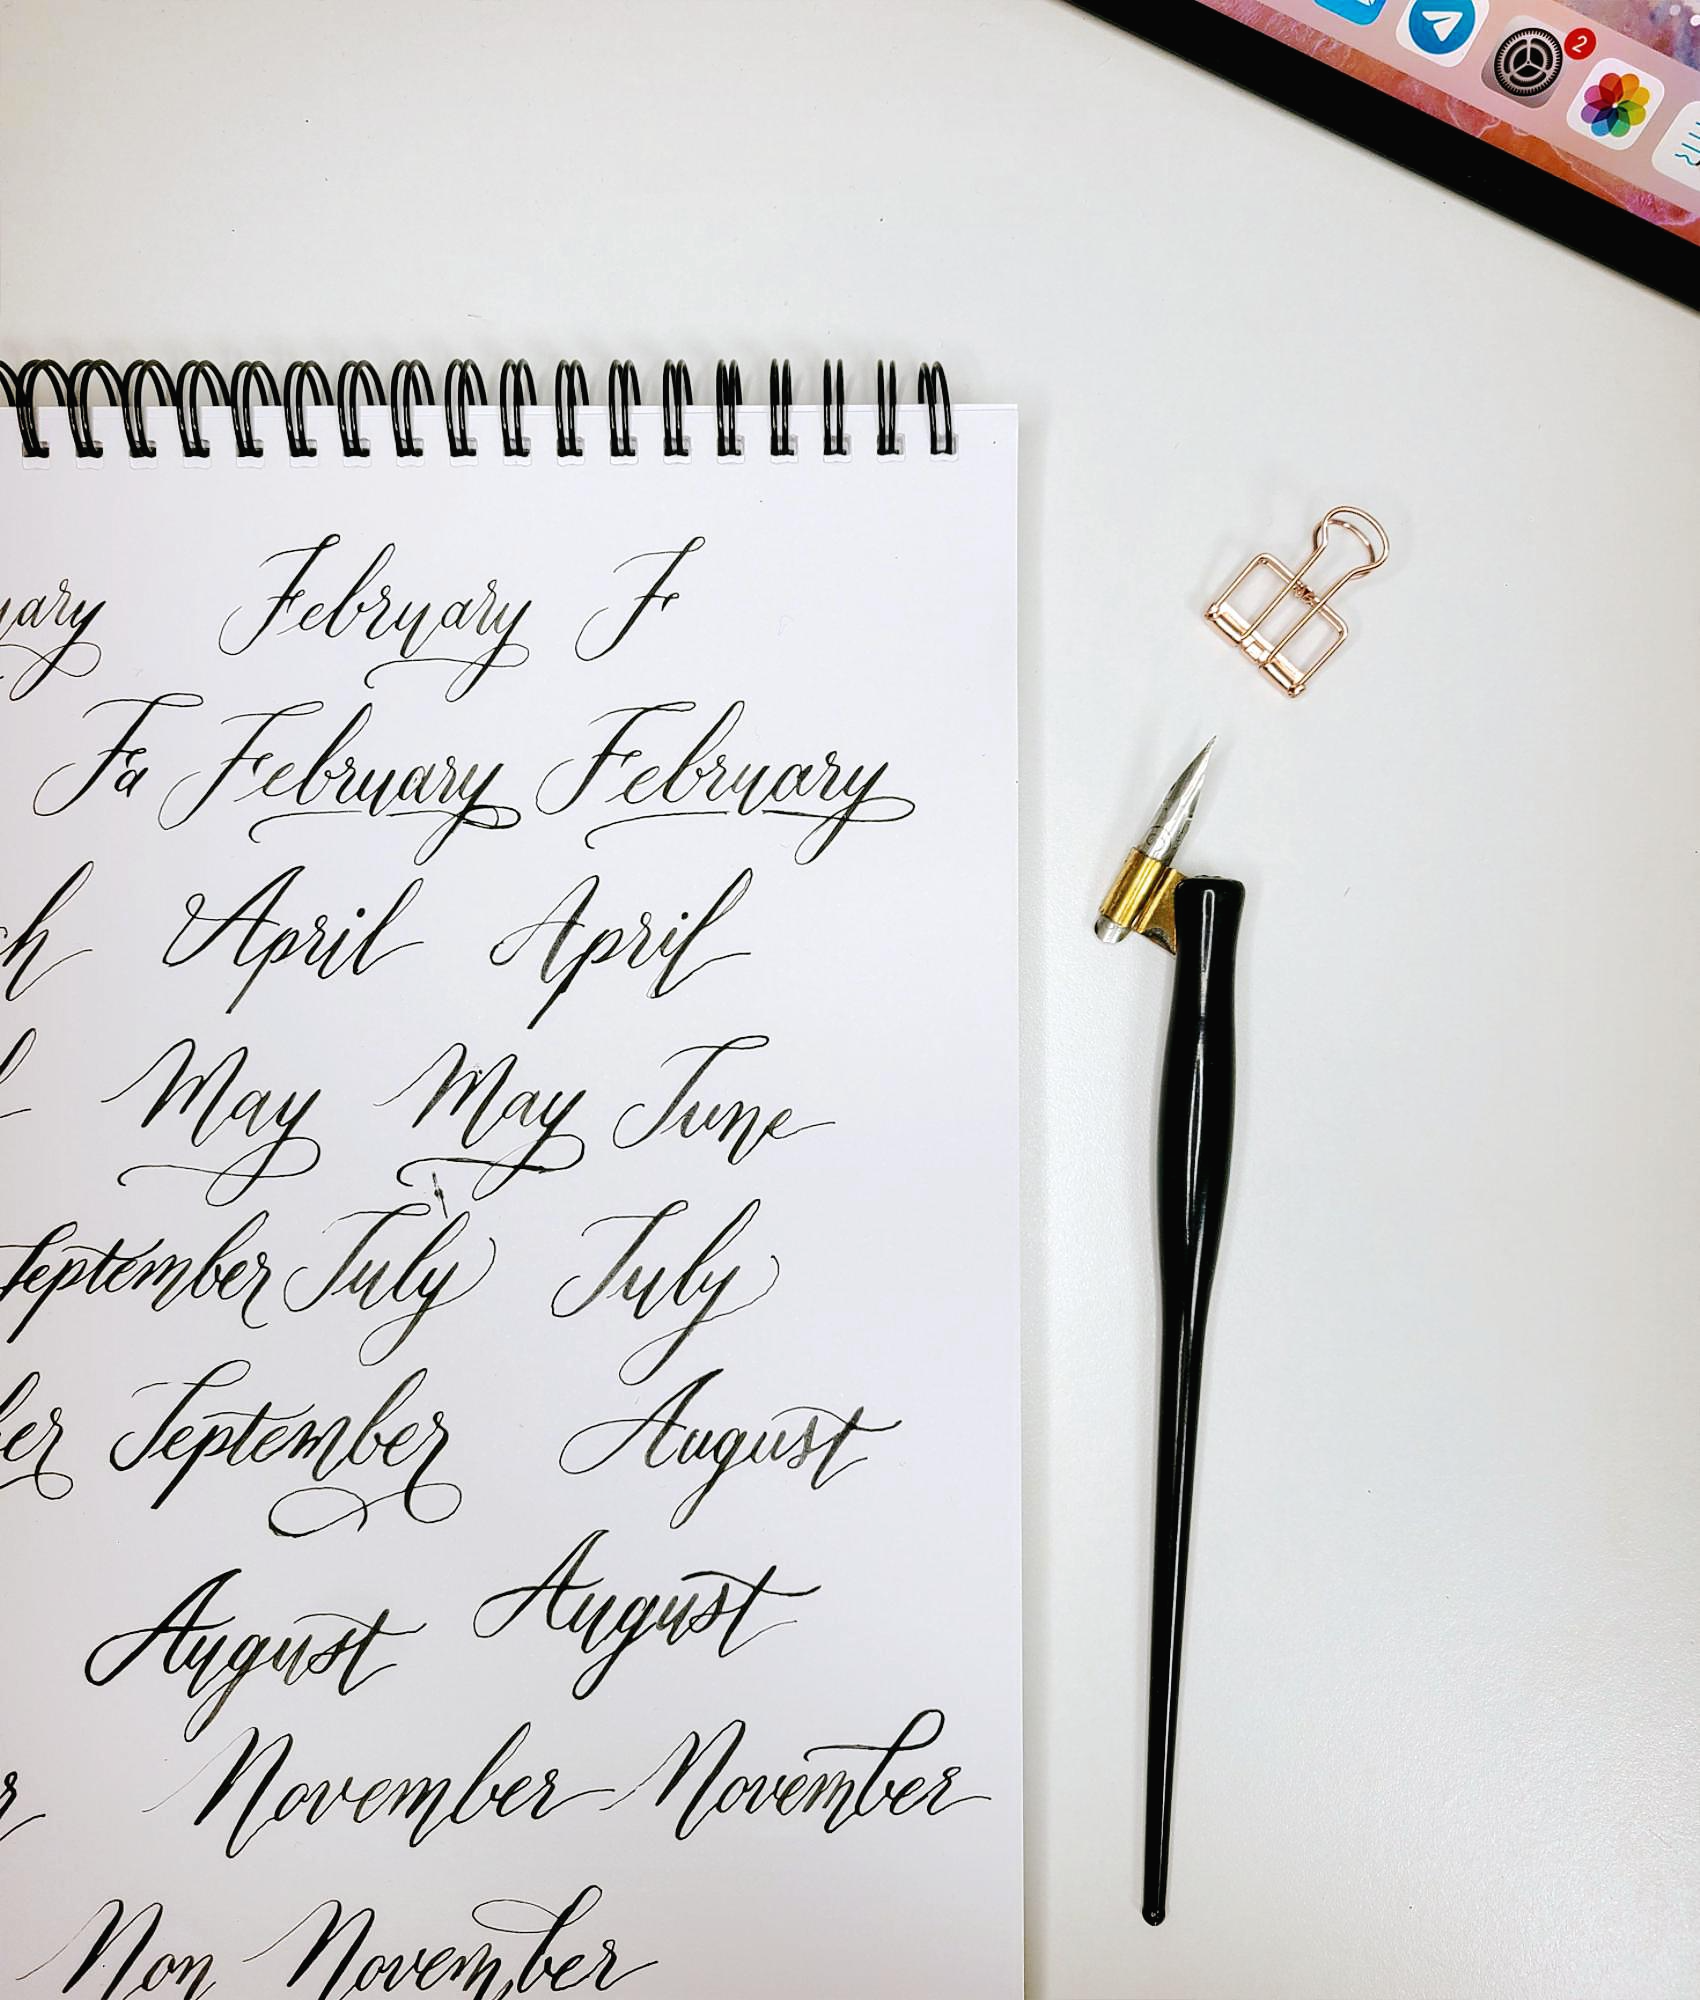 2
uary February F
Fa February February
ch April April
May May June
September July July
ber September August
August August
November November
r
Non November